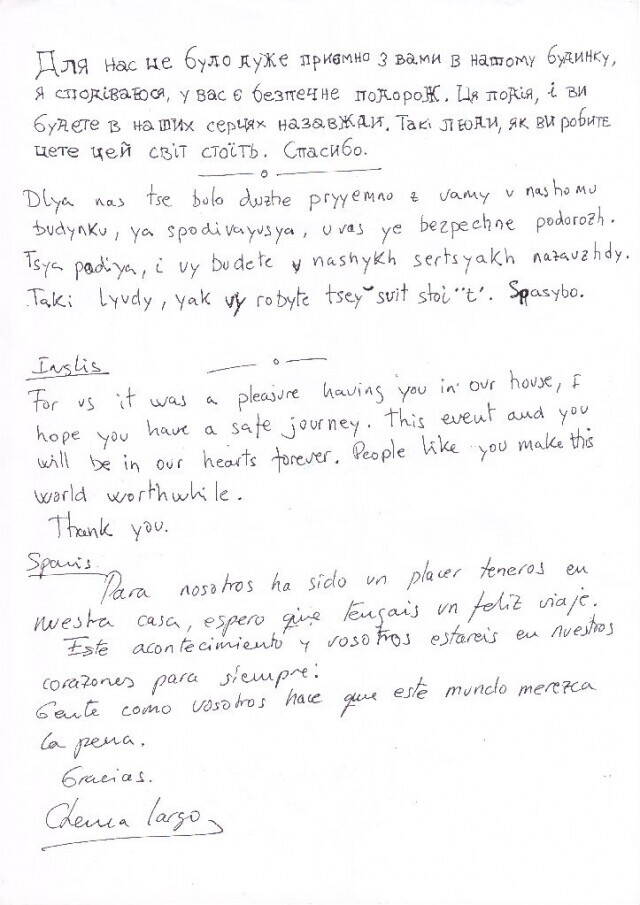 Для нас це було дуже приємно з вами в нашому будинку,
я сподіваюся, у вас є безпечне подорож. Ця подія, і ви
будете в наших серцях назавжди. Такі люди, як ви робите
цете цей світ стоїть. Спасибо.
Dlya nas tse bulo duzhe pryyemno z vamy v nashomu
budynku, ya spodivayusya, u vas ye bezpechne podorozh.
Tsya podiya, i vy budete v nashykh sertsyakh nazavzhdy.
Taki lyudy, yak vy robyte tsey svit stoi"t'. Spasybo.
Inglis
For us it was a pleasure having you in our house, I
hope you have a safe journey. This event and you
will be in our hearts forever. People like you make this
world worthwhile.
Thank you.
Spanis
Para nosotros ha sido un placer teneros en
nuestra casa, espero que tengais un feliz viaje.
Este acontecimiento y vosotros estareis en nuestros
corazones para siempre:
Gente como vosotros hace que este mundo merezca
la pena.
Gracias.
Chema largo